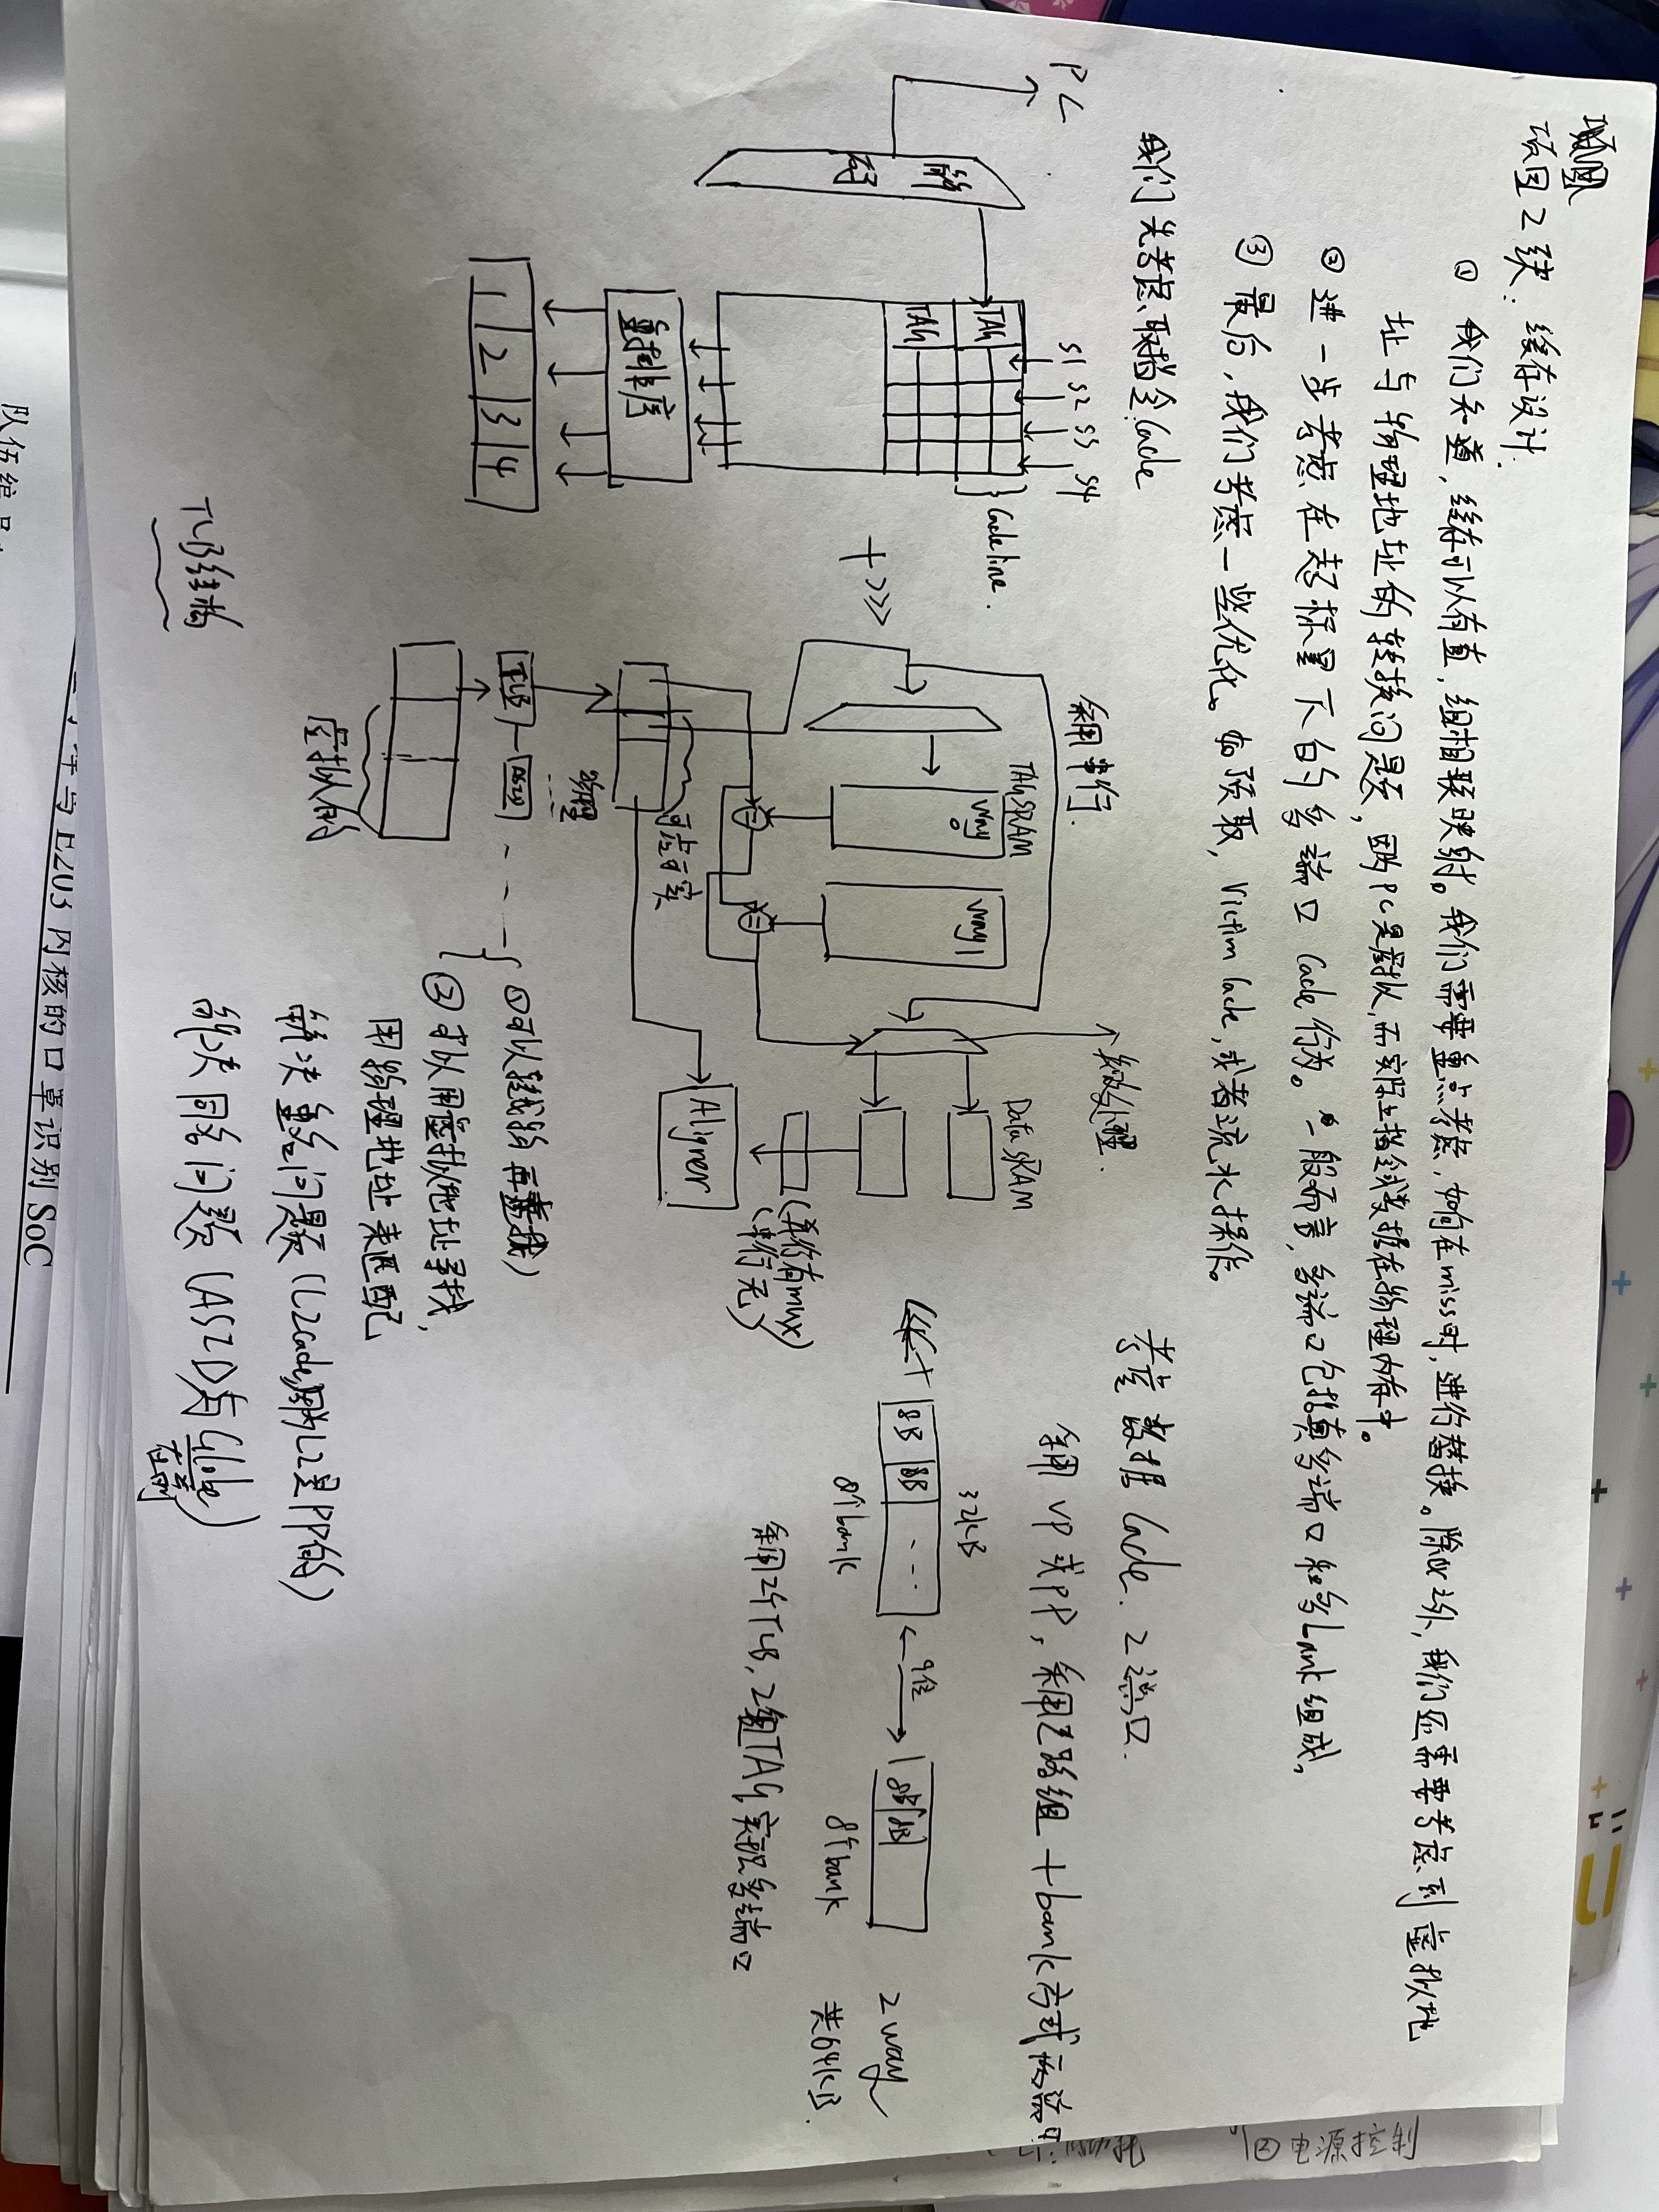 项目2续:缓存设计.
① 我们知道,缓存可以有直,组相联映射。我们需要重点考虑,如何在miss时,进行替换。除此之外,我们还需要考虑到虚拟地
址与物理地址的转换问题,因为PC是虚拟,而实际上指令或数据在物理内存中。
② 进一步考虑在超标量下的多端口 Cache行为。一般而言,多端口包括真多端口和多bank组成。
③ 最后,我们考虑一些优化。如预取,Victim Cache,或者流水操作。
我们先考虑取指令Cache
PC
解码
S1 S2 S3 S4
TAG
TAG
Cache line.
重排序
1 2 3 4
采用串行.
TAG SRAM
way 0
way 1
失效处理.
Data SRAM
(并行有mux)
(串行无)
Aligner
可虚可实
物理
TLB
ASID
虚拟的
①可以转成物再查找)
②可以用虚拟地址寻找,
用物理地址来匹配
解决重名问题(L2Cache,因为L2是PP的)
解决同名问题(ASID与Globe)
在前
TLB结构
考虑数据Cache. 2端口.
采用VP或PP,采用2路组+bank方式
32KB
8B 8B ...
8个bank
9位
8B 8B
8个bank
2 way
共64KB.
采用2个TLB,2组TAG,实现多端口
E203内核的口罩识别SoC
队伍编号: